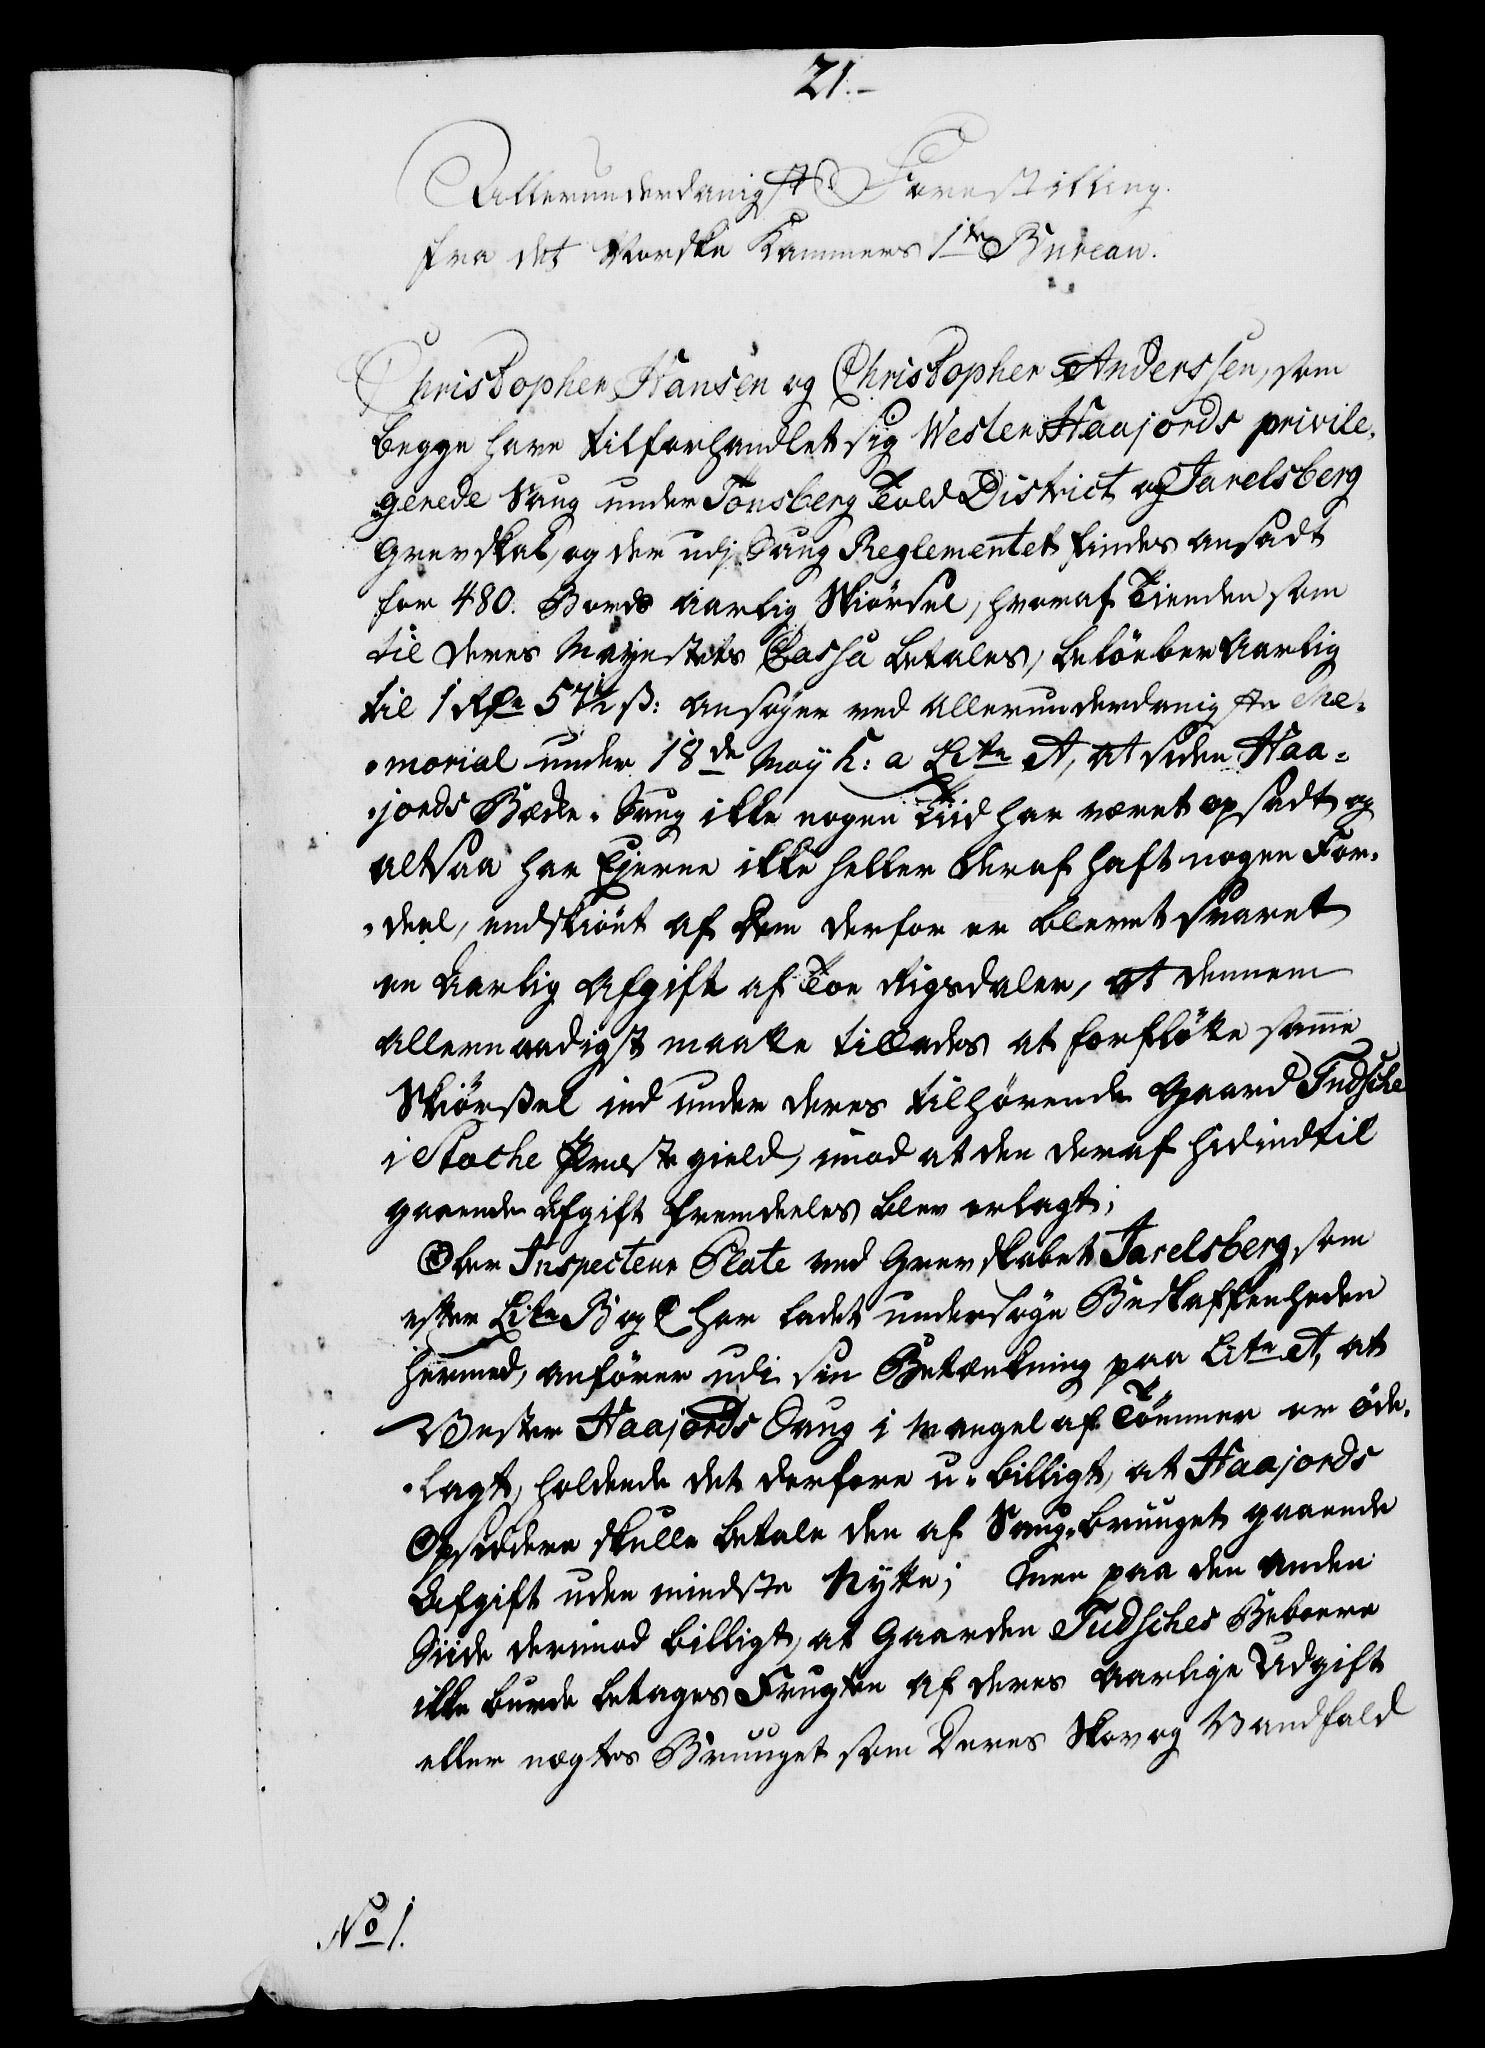 21.
Allerunderdanigst Forestilling.
fra det Norske Kammers 1ste Bureau.
Christopher Hansen og Christopher Anderssen, som
begge have tilforhandlet sig Wester Haajords privile-
gerede Saug under Tönsberg Told District og Jarelsberg
Grevskab, og der udj Saug Reglementet findes ansadt
for 480. Bords aarlig Skiörsel, hvoraf Tienden som
til Deres Mayestets Cassa betales, belöeber aarlig
til 1 Rdr 57½ ß: ansøger ved allerunderdanigste Me-
-morial under 18de May h: a Litr A, at siden Haa-
-jords Bække-Saug ikke nogen Tiid har været opsadt og
altsaa har Ejerne ikke heller deraf haft nogen For-
-deel, endskiönt af dem derfor er blevet svaret
en aarlig Afgift af Toe Rigsdaler, at dennem
allernaadigst maatte tillades at forflötte samme
Skiörsel ind under deres tilhørende Gaard Fudsche
i Stoche Præstegield, imod at den deraf hidindtil
gaaende Afgift fremdeeles blev erlagt;
Ober Inspecteur Plate ved Grevskabet Jarelsberg, som
efter Litr B og C har ladet undersøge Beskaffenheden
hermed, anfører udi sin Betænkning paa Litr A, at
Vester Haajords Saug i Mangel af Tömmer er öde-
-lagt, holdende det derfore u-billigt, at Haajords
Opsiddere skulle betale den af Saug-Bruuget gaaende
Afgift uden mindste Nytte; Men paa den anden
Siide derimod billigt, at Gaarden Fudsches Beboere
ikke burde betages Frugten af deres aarlige Udgift
eller nægtes Bruuget som Deres Skov og Vandfald
No 1.